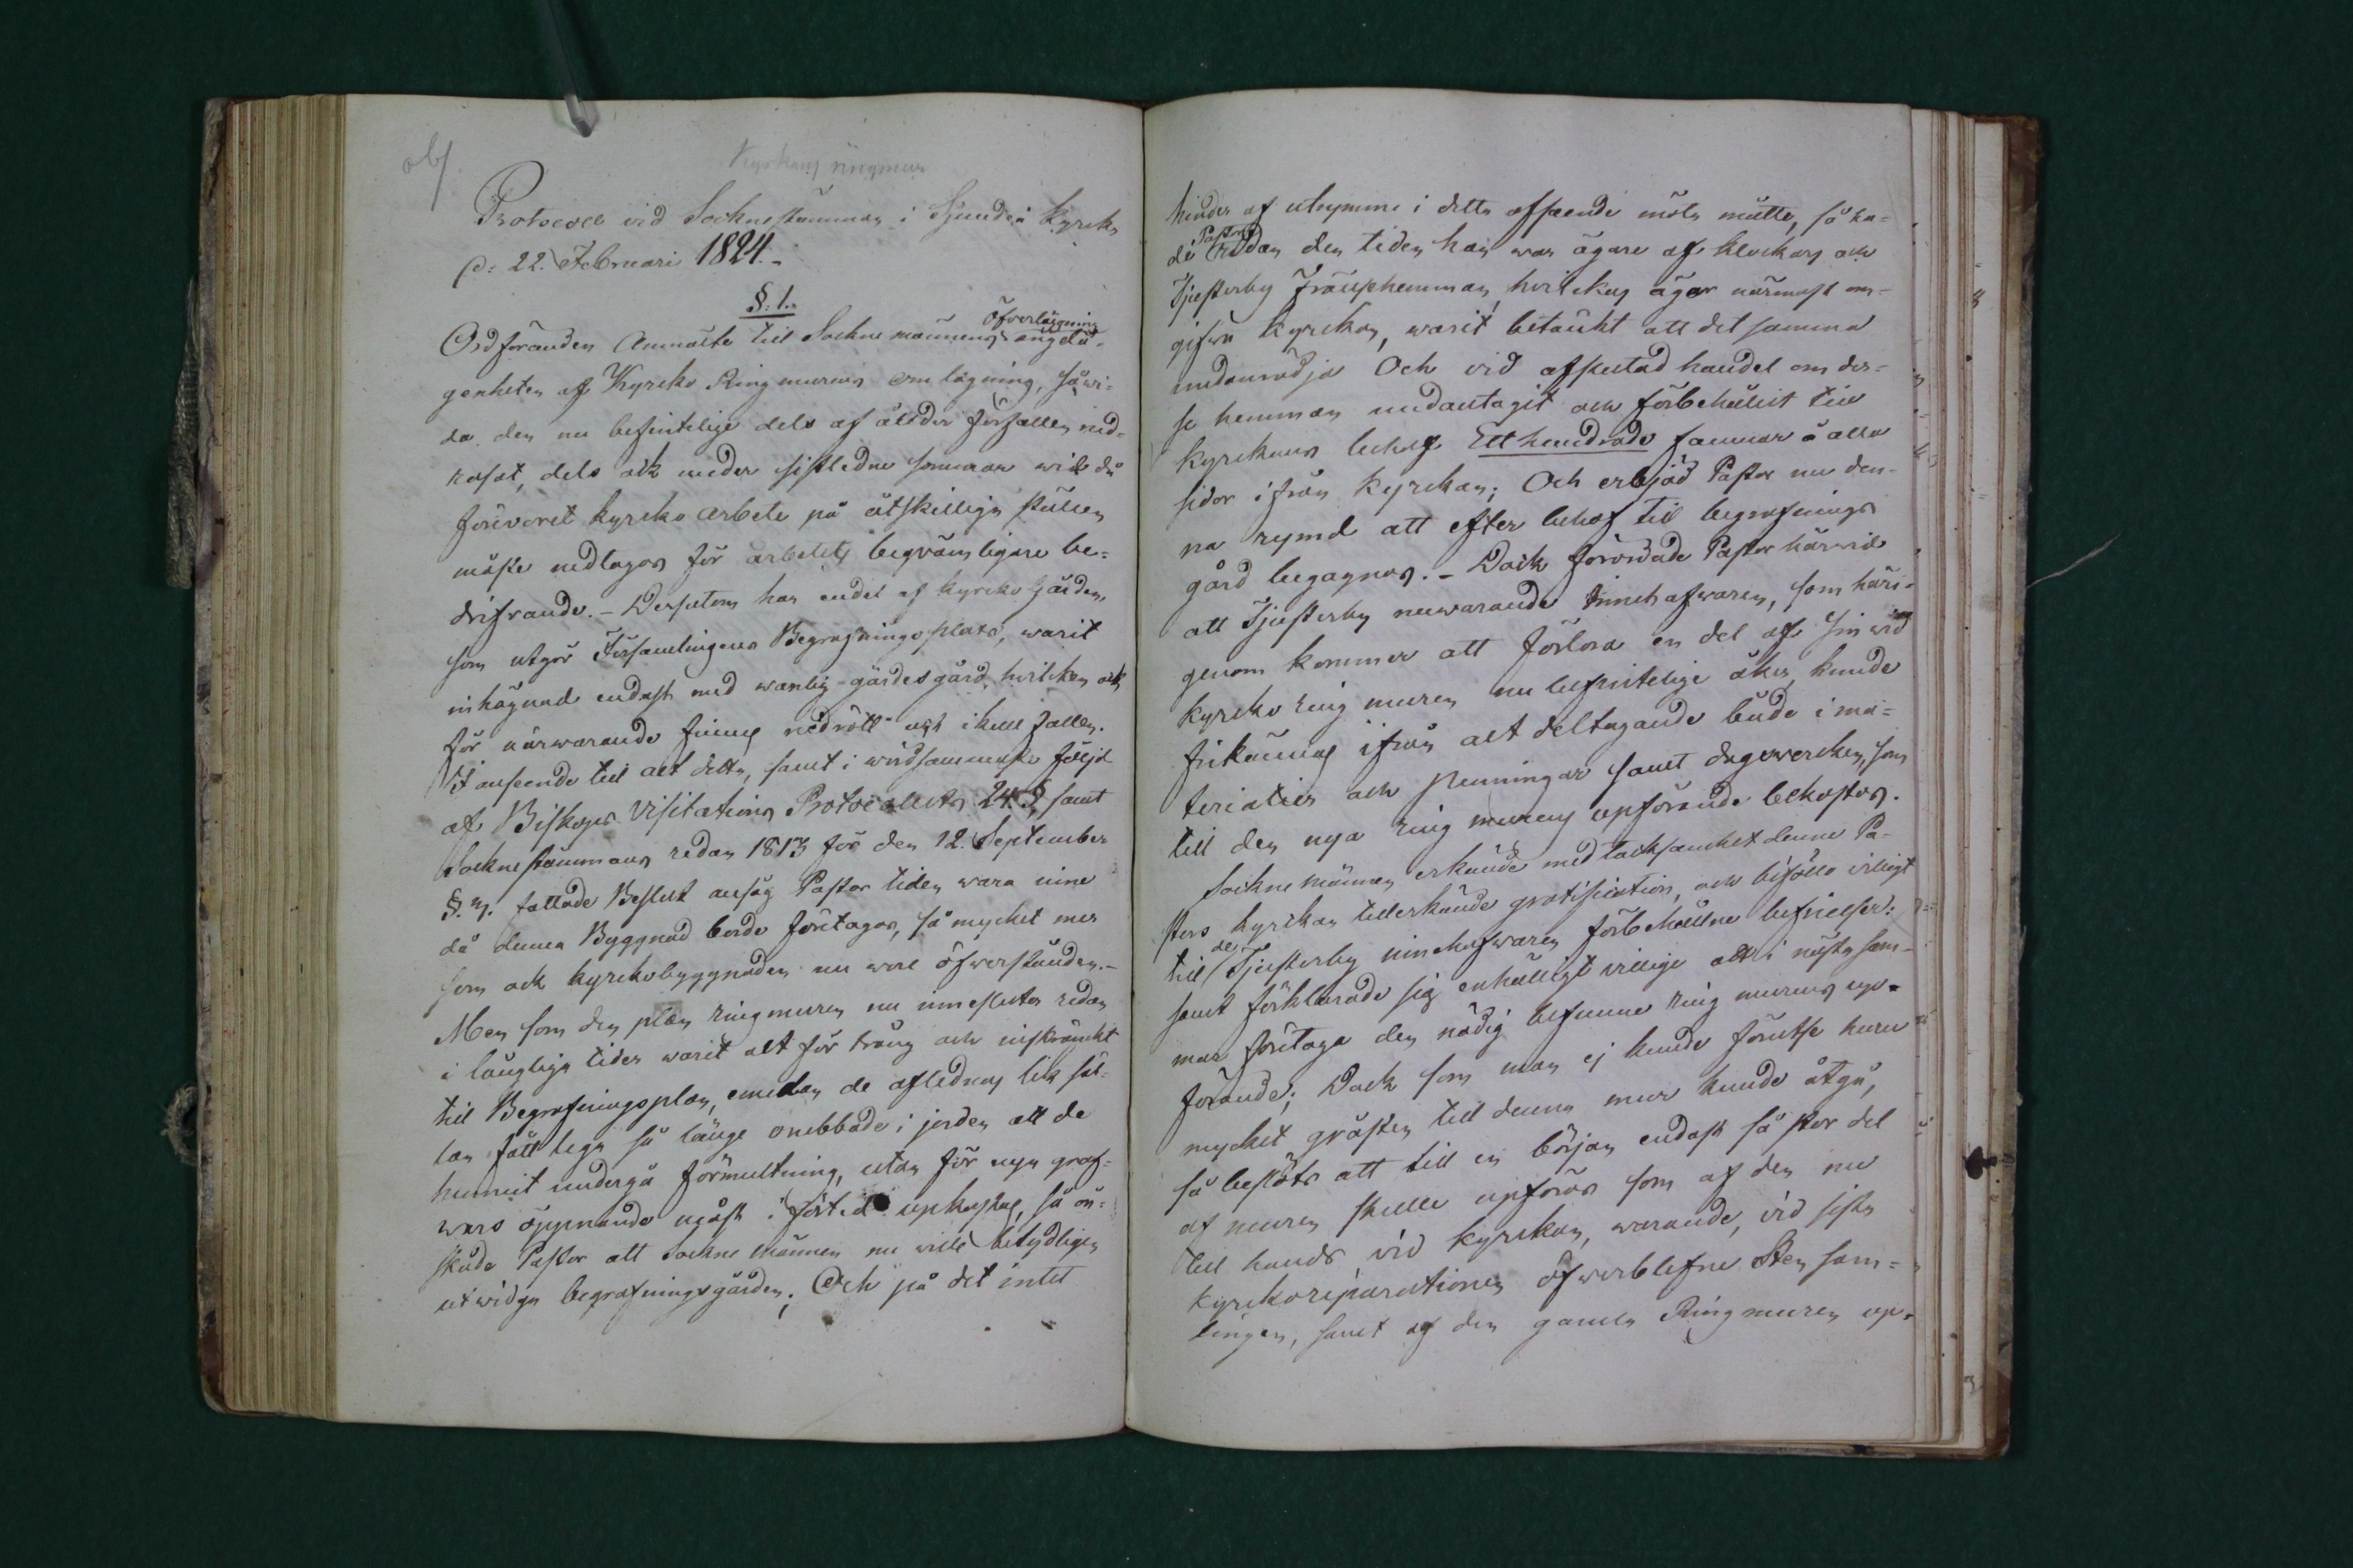 obs
Kyrkans ringmur
Protocoll vid Sockenstämman i Sjundeå Kyrcka
d: 22. Februari 1824.
§. 1.
Ordföranden Anmälte till Sockne männens öfverläggning angelä-
genheten af Kyrcko Ringmurens omlägning, såwi-
da den nu befintelige dels af ålder förfallen ned-
rasat, dels ock under sistledne sommar wid då
förevarit kyrcko arbete på åtskillige ställen
måste nedtagas för arbetets beqvämligare be-
drifvande. - Dessutom har endel af kyrcko Gården,
som utgör Församlingens Begrafnings plats, warit
inhägnad endast med wanlig gärdesgård, hvilken ock
för närwarande finnes nedrött och ikull fallen.
I anseende till allt detta, samt i följd
af Biskops Visitations Protocollets 24. §, samt
Sockne stämmans redan 1813 för den 12. September
§. 3. fattade Beslut ansåg Pastor tiden wara inne
då denna Byggnad borde företagas, så mycket mer
som ock kyrckobyggnaden nu worе öfwerstånden. -
Men som den plan ringmuren nu innesluter redan
i långliga tider warit alt för trång och inskränckt
till Begrafningsplan, emedan de aflednas lik säl-
lan fått liga så länge orubbade i jorden att de
hunnit undergå förmultning, utan för nya graf-
wars öppnande måst i förtid upkastas, så ön-
skade Pastor att Sockne männen nu wille betydligen
utwidga begrafningsgården; Och på det intet
hinder af utrymme i detta afseende möta måtte, så ha-
de Pastor redan den tiden han war ägare af Klockars och
Tjusterby Frälsehemman, hvilckas ägor närmast om-
gifva Kyrckan, warit betänkt att det samma
undanrödja Och vid afslutad handel om des-
se hemman undantagit och förbehållit till
Kyrckans behof Ett hundrade famnar å alla
sidor ifrån Kyrckan; Och erbjöd Pastor nu den-
na rymd att efter behof till begrafnings
gård begagnas. - Dock förordade Pastor härwid
att Tjusterby nuwarande innehafwaren, som häri-
genom kommer att förlora en del af sin wid
kyrcko ring muren nu befintelige åker, kunde
frikännas ifrån alt deltagande både i ma-
terialier och penningar samt dagswercken, som
till den nya ring murens upförande bekostas.
Sockne männen erkände med tacksamhet denne Pa-
stors kyrckan tillerkände gratification, och biföllo villigt
till de Tjusterby innehafwaren förbehållne befrielser:
samt förklarade sig enhälligt villige att i nästa som-
mar företaga den nödig befunne ring murens up-
förande; Dock som man ej kunde förutse huru
mycket gråsten till denna mur kunde åtgå,
så beslöts att till en början endast så stor del
af muren skulle upföras som af den nu
till hands vid kyrckan, warande, vid sista
kyrckoreparationen öfwerblefne Sten sam-
lingen, samt af den gamla Ringmuren up-